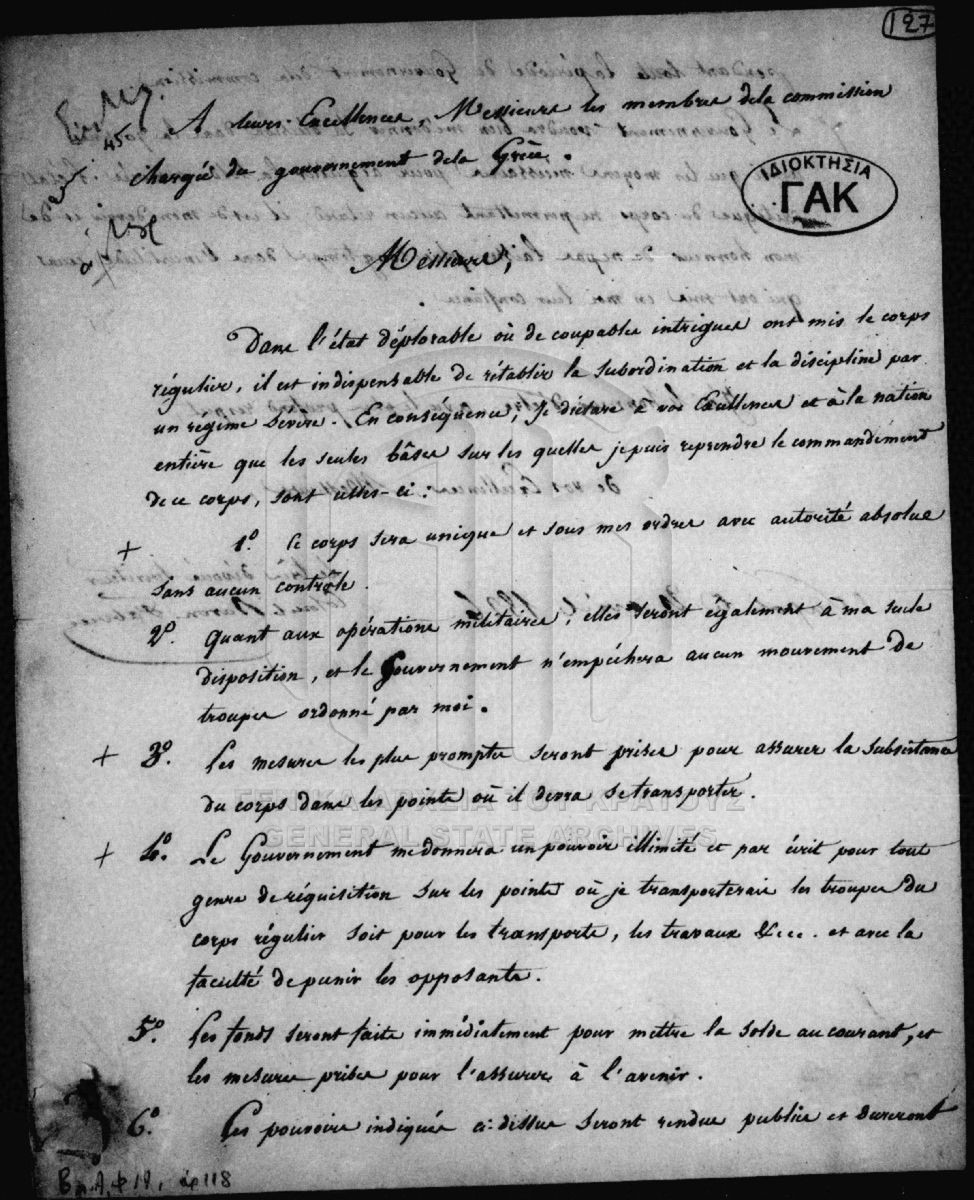 127
A leurs Excellences, Messieurs les membres de la commission
chargée du gouvernement de la Grèce.
45
ΙΔΙΟΚΤΗΣΙΑ
ΓΑΚ
Messieurs,
Dans l'état déplorable où de coupables intrigues ont mis le corps
régulier, il est indispensable de rétablir la subordination et la discipline par
un régime sévère. En conséquence, Je déclare à vos Excellences et à la nation
entière que les seules bâses sur les quelles je puis reprendre le commandement
de ce corps, sont celles-ci:
+ 1º Ce corps sera unique et sous mes ordres avec autorité absolue
sans aucun contrôle.
2º Quant aux opérations militaires, elles seront également à ma seule
disposition, et le Gouvernement n'empêchera aucun mouvement de
troupes ordonné par moi.
+ 3º. Les mesures les plus promptes seront prises pour assurer la subsistance
du corps dans les points où il devra se transporter.
ΓΕΝΙΚΑ ΑΡΧΕΙΑ ΤΟΥ ΚΡΑΤΟΥΣ
GENERAL STATE ARCHIVES
+ 4º. Le Gouvernement me donnera un pouvoir illimité et par écrit pour tout
genre de réquisition sur les points où je transporterais les troupes du
corps régulier soit pour les transports, les travaux &c... et avec la
faculté de punir les opposants.
5º. Les fonds seront faits immédiatement pour mettre la solde au courant, et
les mesures prises pour l'assurer à l'avenir.
6º. Les pouvoirs indiqués ci-dessus seront rendus publics et dureront
118